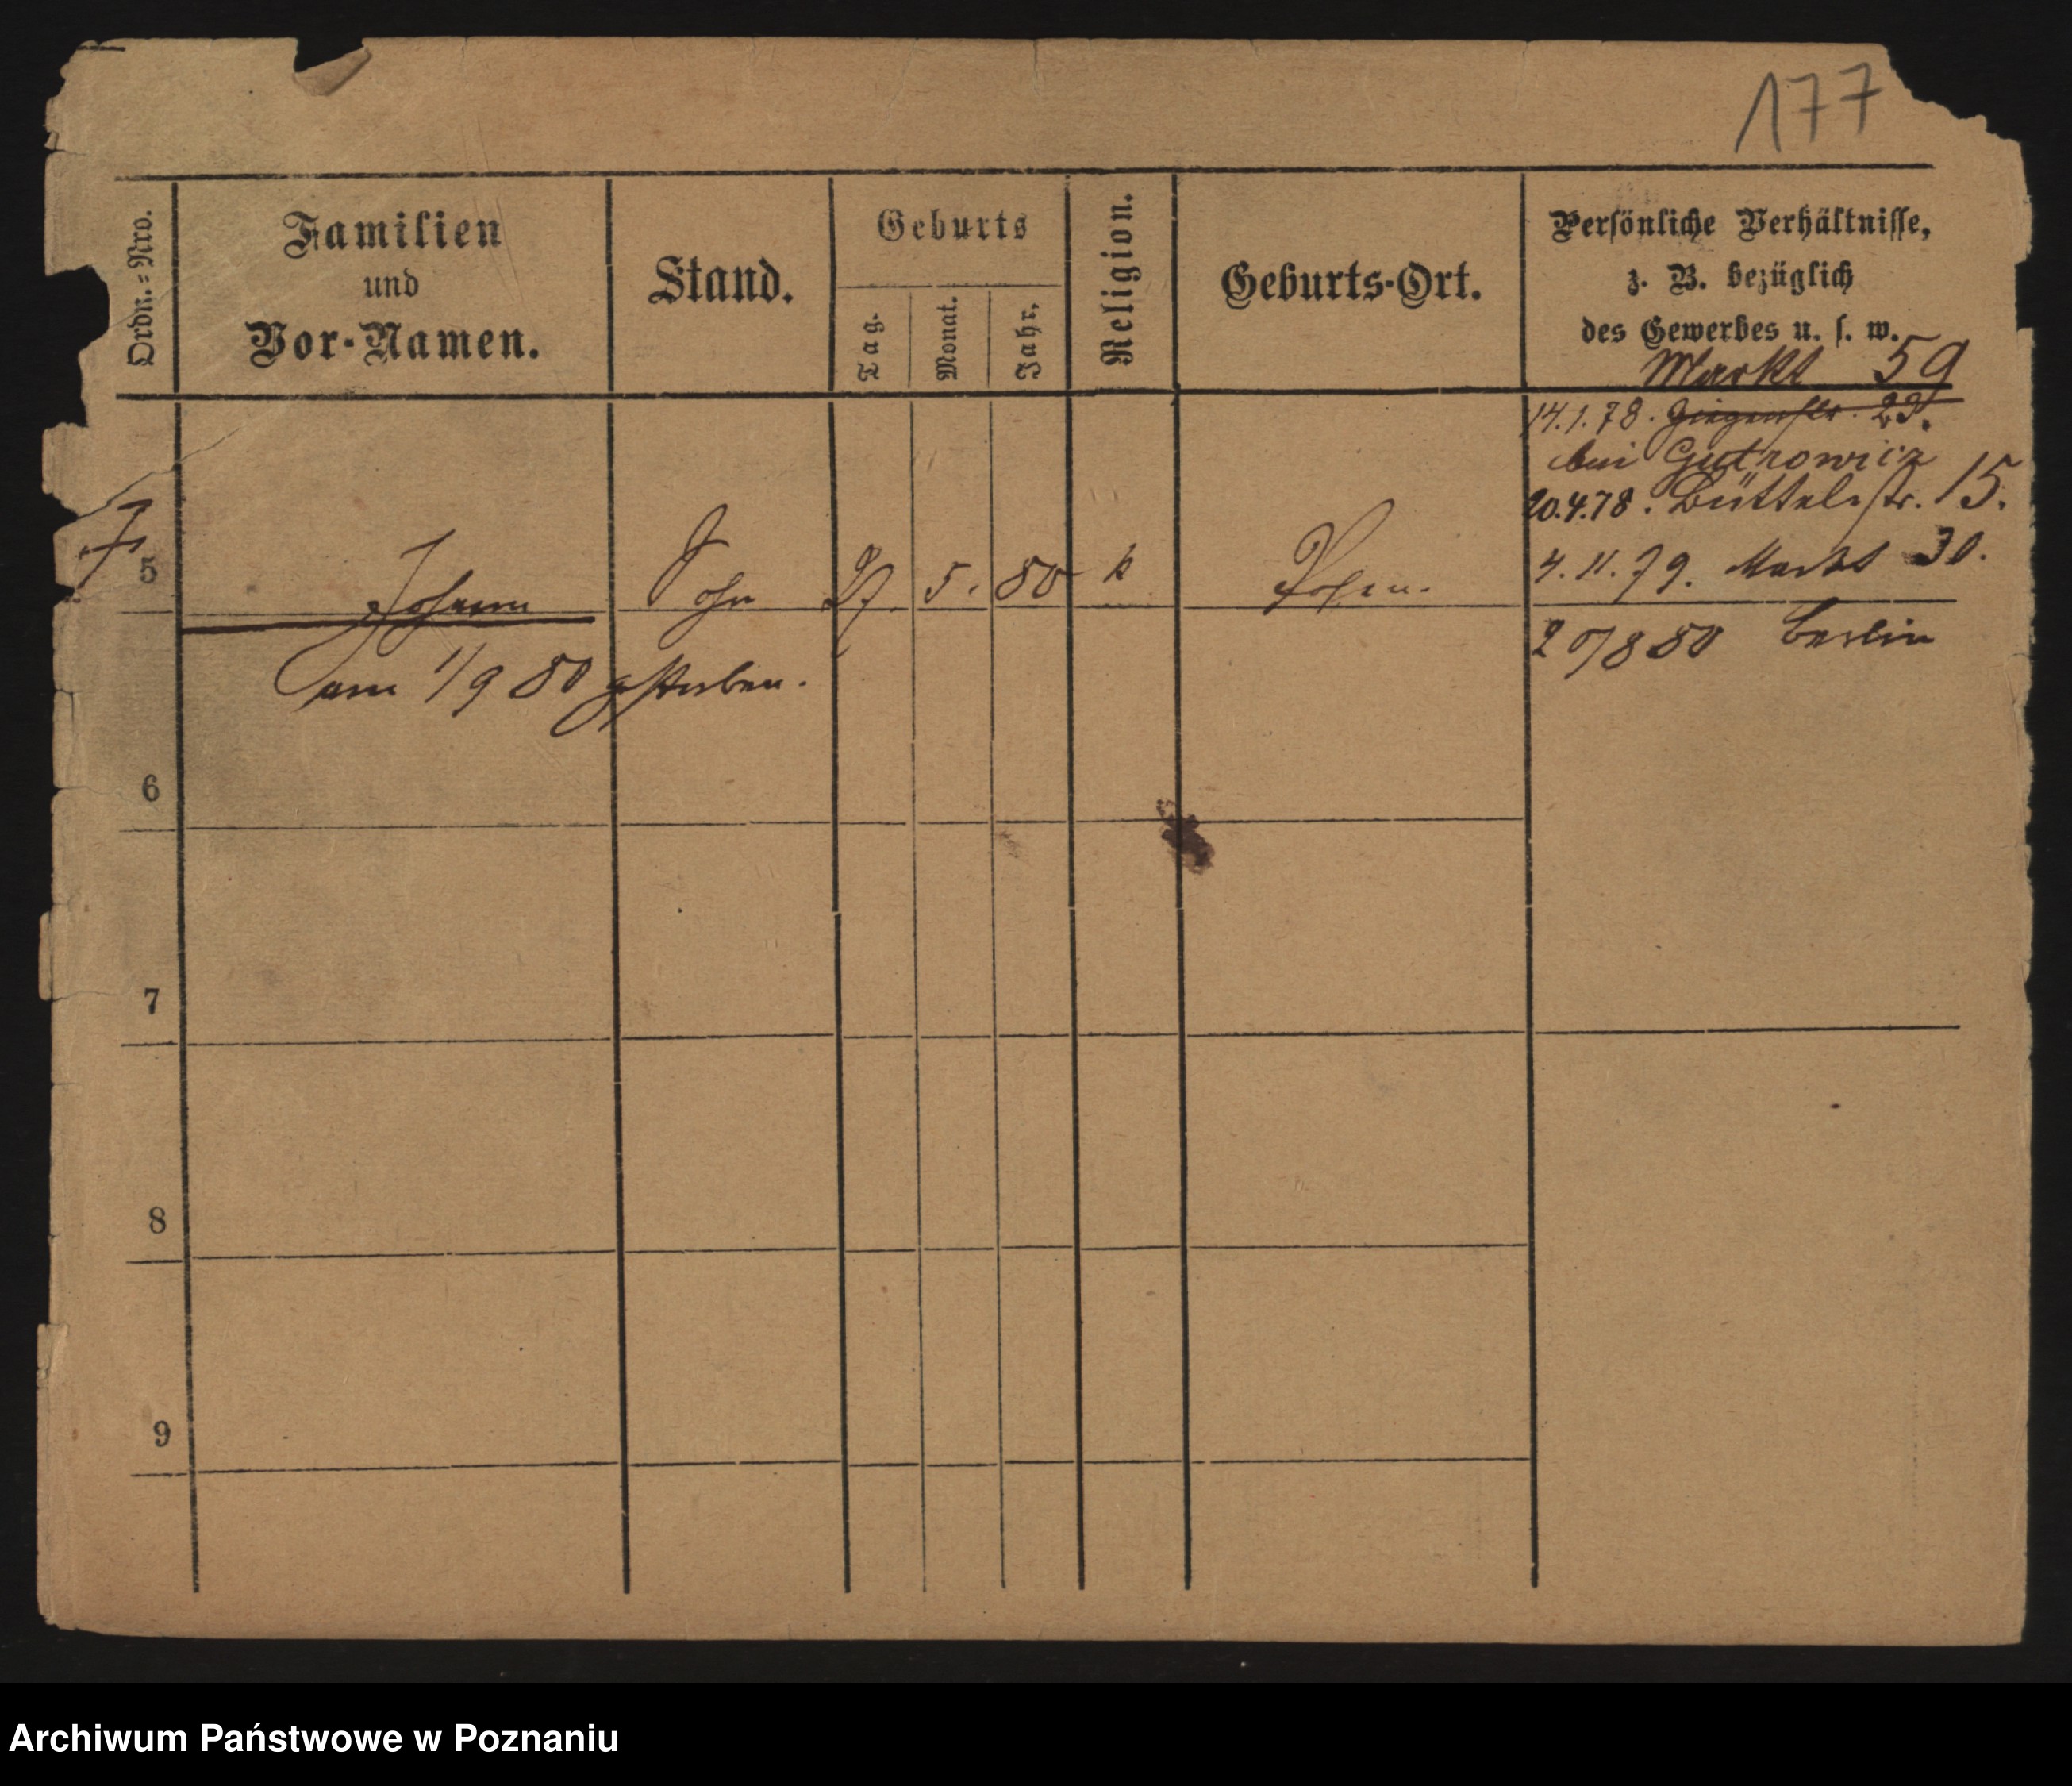 177
Ordn.=Nro.
Familien
und
Vor-Namen.
Stand.
Geburts
Tag.
Monat.
Jahr.
Religion.
Geburts-Ort.
Persönliche Verhältnisse,
z. B. bezüglich
des Gewerbes u. s. w.
Markt 59
14.1.78. 23.
bei Gutrowicz
20.4.78. Büttelstr. 15.
4.11.79. Markt 30.
5 Johann Sohn 27. 5. 80 k Posen.
20/8 80 Berlin
am 1/9 80 gestorben.
6
7
8
9
Archiwum Państwowe w Poznaniu